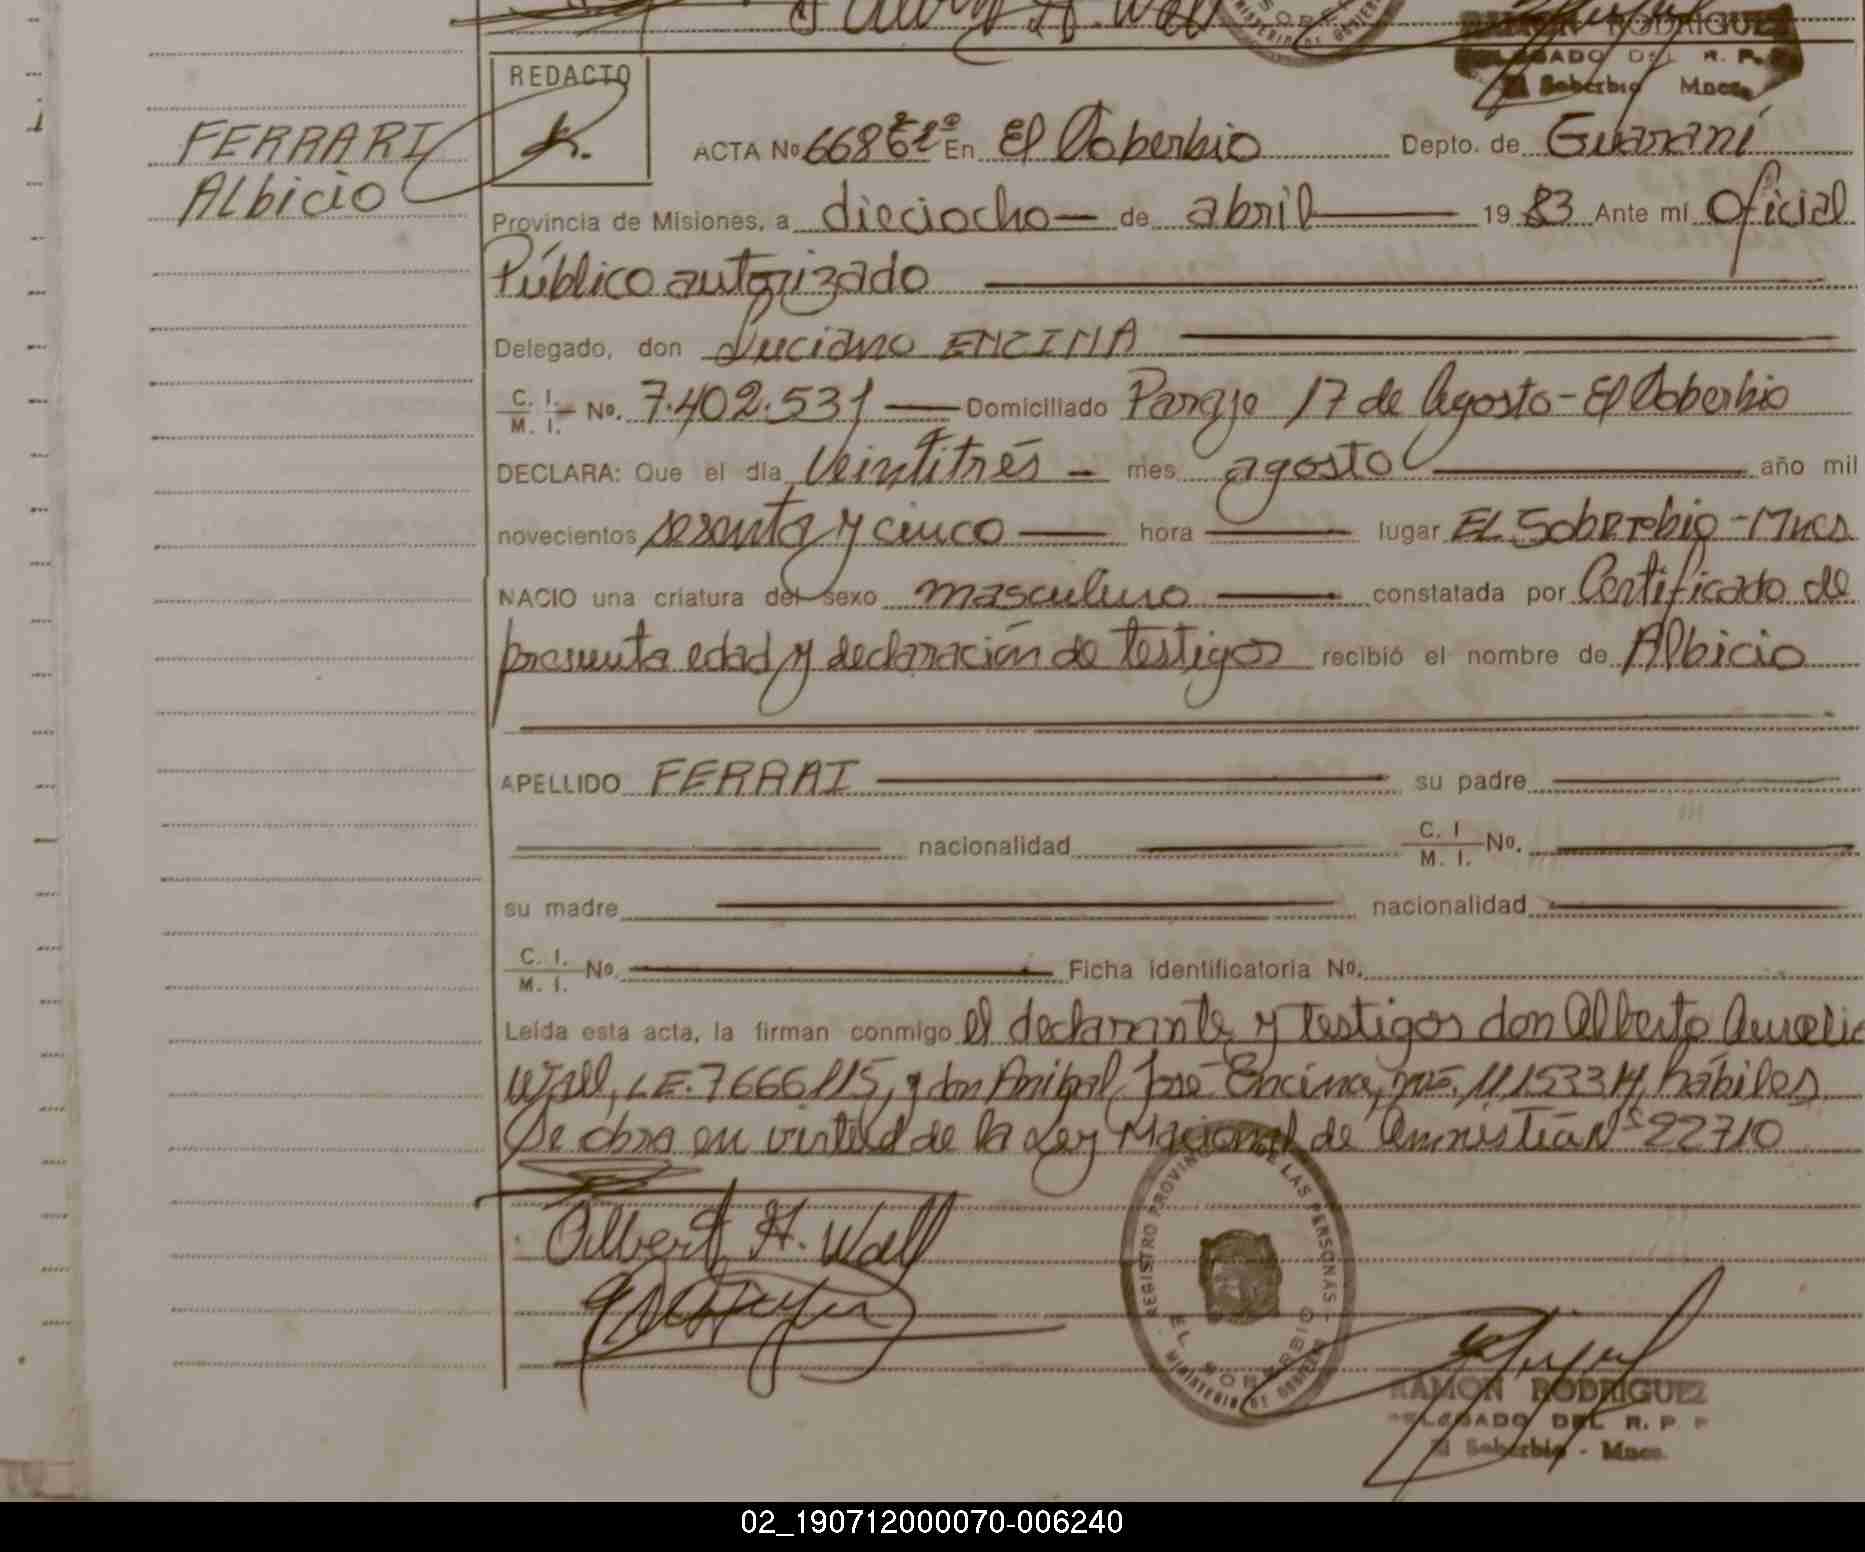 Albert H. Wall
RAMON RODRIGUEZ
DELEGADO DEL R. P.
El Soberbio Mnes.
REDACTO
FERRARI
Albicio
ACTA Nº 668 En El Soberbio Depto. de Guaraní
Provincia de Misiones, a dieciocho de abril 19 83 Ante mí Oficial
Público autorizado
Delegado, don Luciano ENCINA
C. I. M. I. Nº. 7.402.531 Domiciliado Paraje 17 de Agosto - El Soberbio
DECLARA: Que el día Veintitrés mes agosto año mil
novecientos sesenta y cinco hora lugar EL Soberbio - Mnes
NACIO una criatura del sexo masculino constatada por Certificado de
presunta edad y declaración de testigos recibió el nombre de Albicio
APELLIDO FERRARI su padre
nacionalidad C. I M. I. Nº.
su madre nacionalidad
C. I. M. I. Nº. Ficha identificatoria Nº.
Leída esta acta, la firman conmigo el declarante y testigos don Alberto Aurelio
Wall, L.E. 7666115, y don Anibal José Encina, hábiles
Se obra en virtud de la Ley Nacional de Amnistía Nº 22710
Albert H. Wall
REGISTRO PROVINCIAL DE LAS PERSONAS
EL SOBERBIO
MINISTERIO DE GOBIERNO
RAMON RODRIGUEZ
DELEGADO DEL R. P. P
El Soberbio - Mnes.
02_190712000070-006240